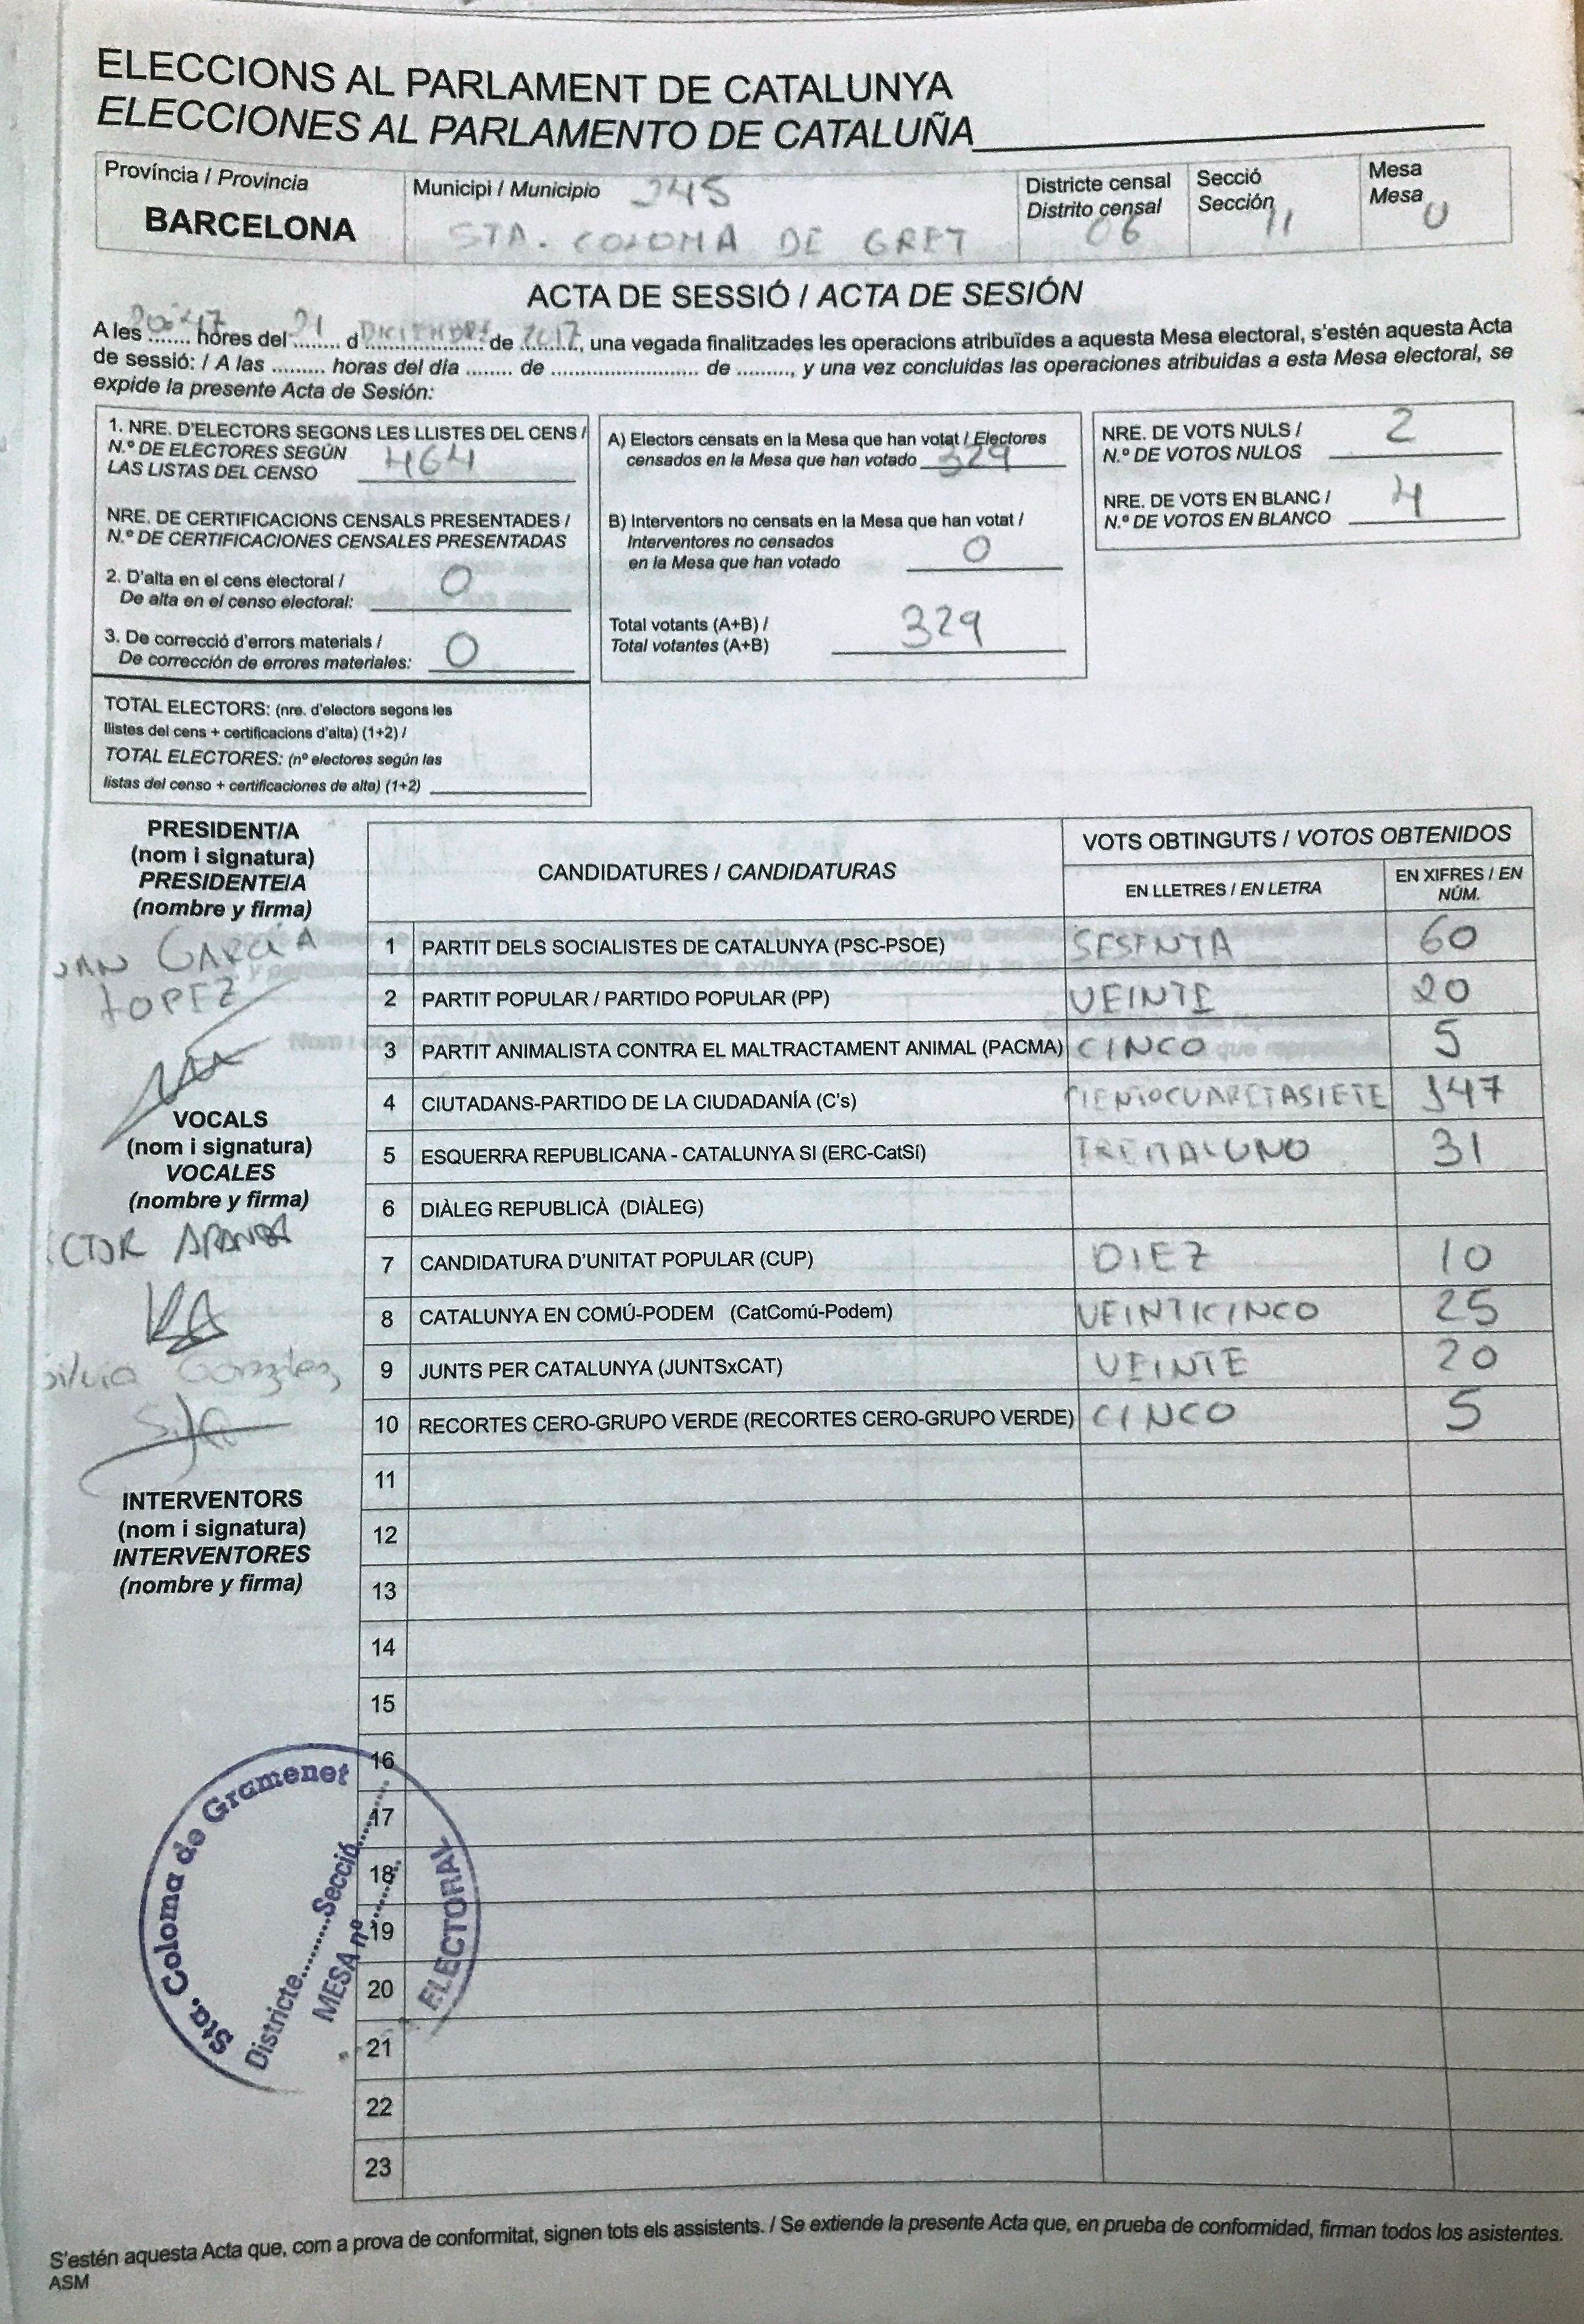 ELECCIONS AL PARLAMENT DE CATALUNYA
ELECCIONES AL PARLAMENTO DE CATALUÑA
Província / Provincia
BARCELONA
Municipi / Municipio 245
STA. COLOMA DE GRET
Districte censal
Distrito censal
06
Secció
Sección
11
Mesa
Mesa
U
ACTA DE SESSIÓ / ACTA DE SESIÓN
A les ....... hores del 21 d DICIEMBRE de 2017, una vegada finalitzades les operacions atribuïdes a aquesta Mesa electoral, s'estén aquesta Acta
de sessió: / A las ......... horas del día ........ de .......................... de ........., y una vez concluidas las operaciones atribuidas a esta Mesa electoral, se
expide la presente Acta de Sesión:
1. NRE. D'ELECTORS SEGONS LES LLISTES DEL CENS /
N.º DE ELECTORES SEGÚN
LAS LISTAS DEL CENSO 464
NRE. DE CERTIFICACIONS CENSALS PRESENTADES /
N.º DE CERTIFICACIONES CENSALES PRESENTADAS
2. D'alta en el cens electoral /
De alta en el censo electoral: 0
3. De correcció d'errors materials /
De corrección de errores materiales: 0
TOTAL ELECTORS: (nre. d'electors segons les
llistes del cens + certificacions d'alta) (1+2) /
TOTAL ELECTORES: (nº electores según las
listas del censo + certificaciones de alta) (1+2)
A) Electors censats en la Mesa que han votat / Electores
censados en la Mesa que han votado 329
B) Interventors no censats en la Mesa que han votat /
Interventores no censados
en la Mesa que han votado 0
Total votants (A+B) /
Total votantes (A+B) 329
NRE. DE VOTS NULS /
N.º DE VOTOS NULOS 2
NRE. DE VOTS EN BLANC /
N.º DE VOTOS EN BLANCO 4
PRESIDENT/A
(nom i signatura)
PRESIDENTE/A
(nombre y firma)
GARCÍA
LOPEZ
VOCALS
(nom i signatura)
VOCALES
(nombre y firma)
CTOR
silvia Gonzalez
INTERVENTORS
(nom i signatura)
INTERVENTORES
(nombre y firma)
CANDIDATURES / CANDIDATURAS
VOTS OBTINGUTS / VOTOS OBTENIDOS
EN LLETRES / EN LETRA
EN XIFRES / EN
NÚM.
1 PARTIT DELS SOCIALISTES DE CATALUNYA (PSC-PSOE) SESENTA 60
2 PARTIT POPULAR / PARTIDO POPULAR (PP) VEINTE 20
3 PARTIT ANIMALISTA CONTRA EL MALTRACTAMENT ANIMAL (PACMA) CINCO 5
4 CIUTADANS-PARTIDO DE LA CIUDADANÍA (C's) 147
5 ESQUERRA REPUBLICANA - CATALUNYA SI (ERC-CatSí) 31
6 DIÀLEG REPUBLICÀ (DIÀLEG)
7 CANDIDATURA D'UNITAT POPULAR (CUP) DIEZ 10
8 CATALUNYA EN COMÚ-PODEM (CatComú-Podem) VEINTICINCO 25
9 JUNTS PER CATALUNYA (JUNTSxCAT) VEINTE 20
10 RECORTES CERO-GRUPO VERDE (RECORTES CERO-GRUPO VERDE) CINCO 5
11
12
13
14
15
16
17
18
19
20
21
22
23
Sta. Coloma de Gramenet
Districte.........Secció.........
MESA nº.........
ELECTORAL
S'estén aquesta Acta que, com a prova de conformitat, signen tots els assistents. / Se extiende la presente Acta que, en prueba de conformidad, firman todos los asistentes.
ASM